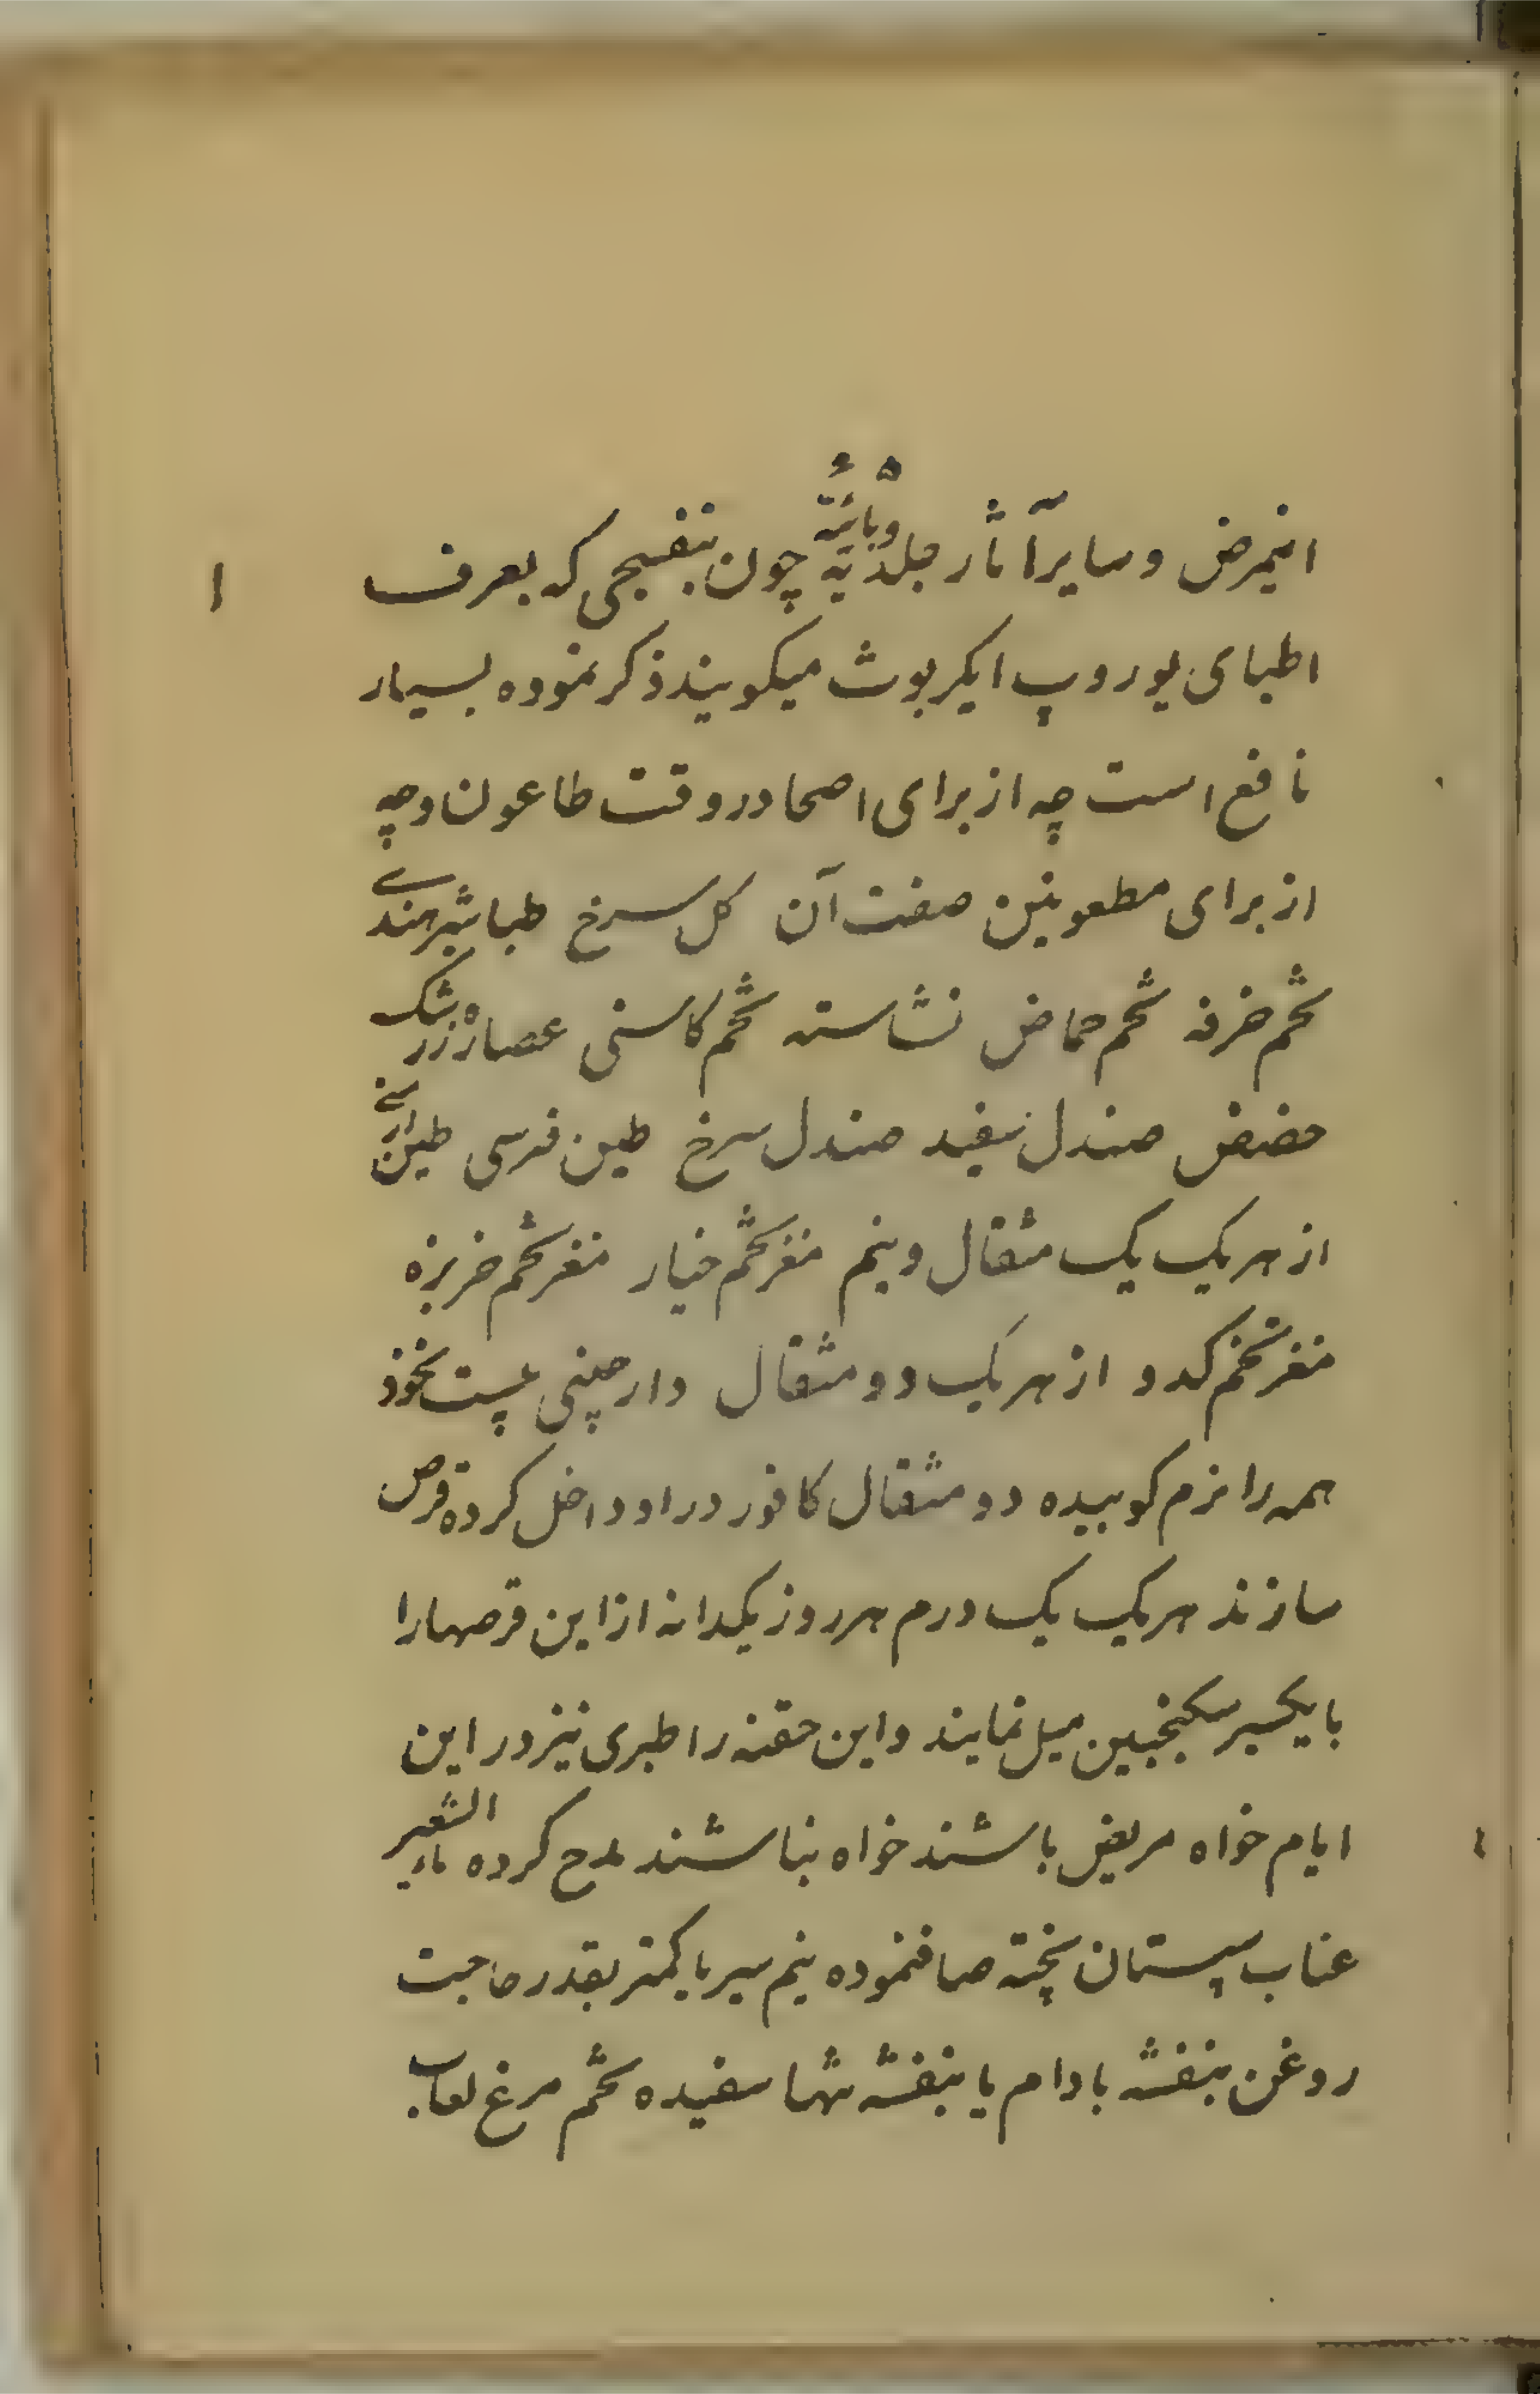 اینمرض و سایر آثار جلدیه وبائیه چون بنفسجی که بعرف
اطبای یوروپ ایکربوت میکویند ذکر نموده بسیار
نافع است چه از برای اصحا در وقت طاعون و چه
از برای مطعونین صفت آن کل سرخ طباشیر هندی
تخم خرفه تخم حماض نشاسته تخم کاسنی عصاره زرشک
حضض صندل سفید صندل سرخ طین فرسی طین ارمنی
از هر یک یک مثقال و نیم مغز تخم خیار مغز تخم خربزه
مغز تخم کدو از هر یک دو مثقال دارچینی بیست نخود
همه را نرم کوبیده دو مثقال کافور در او داخل کرده قرص
سازند هر یک یک درم هر روز یکدانه از این قرصها را
با یکسیر سکنجبین میل نمایند و این حقنه را طبری نیز در این
ایام خواه مریض باشند خواه نباشند مدح کرده ماء الشعیر
عناب سپستان پخته صافنموده نیم سیر یا کمتر بقدر حاجت
روغن بنفشه بادام یا بنفشه تنها سفیده تخم مرغ لعاب